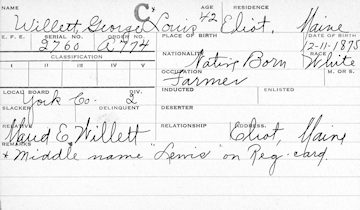 NAME C* AGE RESIDENCE
Willett, George Louis 42 Eliot, Maine
E. F. E. SERIAL NO. ORDER NO. PLACE OF BIRTH DATE OF BIRTH
2760 A774 12-11-1875
CLASSIFICATION NATIONALITY RACE
I II III IV V Native Born White
OCCUPATION M. OR S.
Farmer
LOCAL BOARD DIV. INDUCTED ENLISTED
York Co. 2
SLACKER DELINQUENT DESERTER
RELATIVE RELATIONSHIP ADDRESS
Maud E. Willett Eliot, Maine
REMARKS
* Middle name "Lewis" on Reg. card.